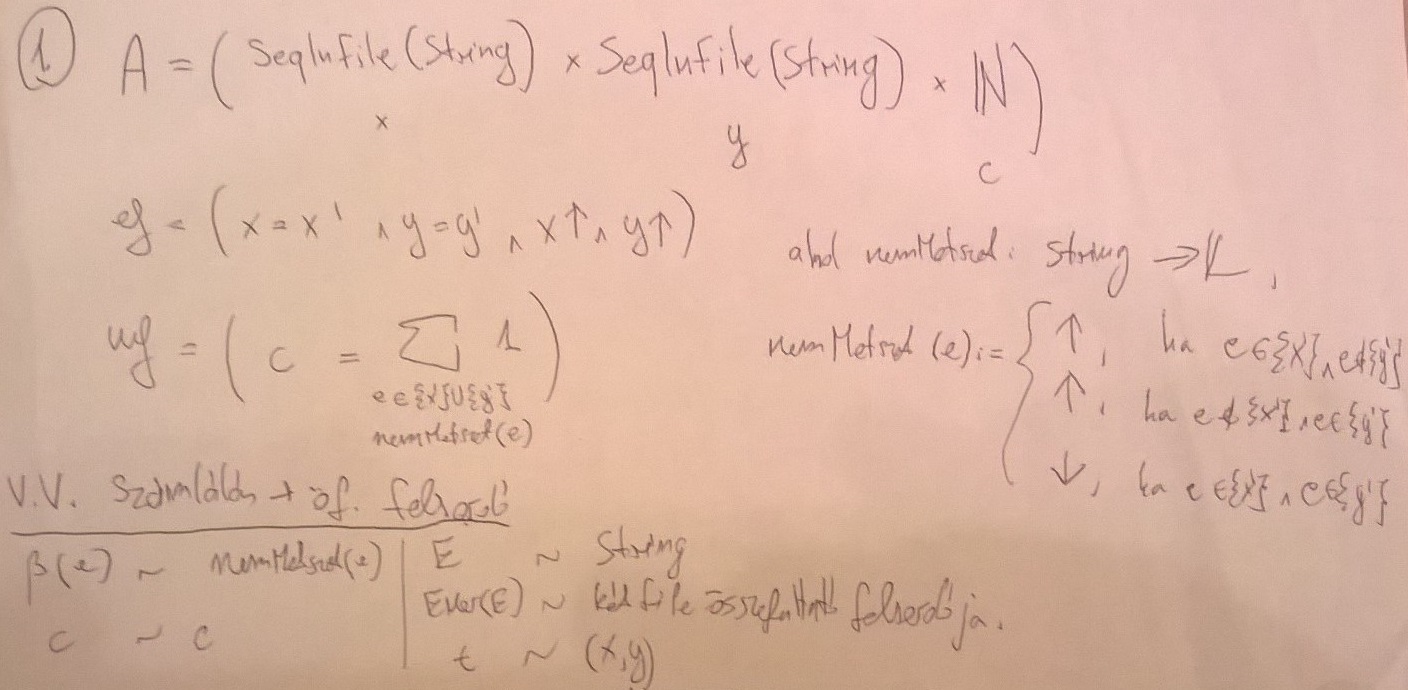 1. A = (SeqInFile(String) × SeqInFile(String) × ℕ)
x y c
ef = (x = x' ∧ y = y' ∧ x↑ ∧ y↑)
ahol nemMetszet: String → 𝕃,
uf = (c = ∑ 1)
e∈{x'}∪{y'}
nemMetszet(e)
nemMetszet(e) := { ↑, ha e∈{x'} ∧ e∉{y'}
↑, ha e∉{x'} ∧ e∈{y'}
↓, ha e∈{x'} ∧ e∈{y'}
V.V. Számlálás + öf. felsoroló
β(e) ~ nemMetszet(e) | E ~ String
Enor(E) ~ két file összefuttató felsorolója.
c ~ c
t ~ (x,y)